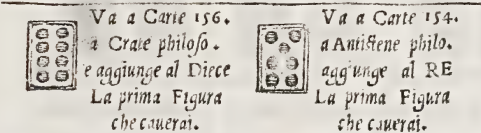 Va a Carte 156.
a Crate philoso.
e aggiunge al Diece
La prima Figura
che cauerai.
Va a Carte 154.
a Antistene philo.
aggiunge al RE
La prima Figura
che cauerai.